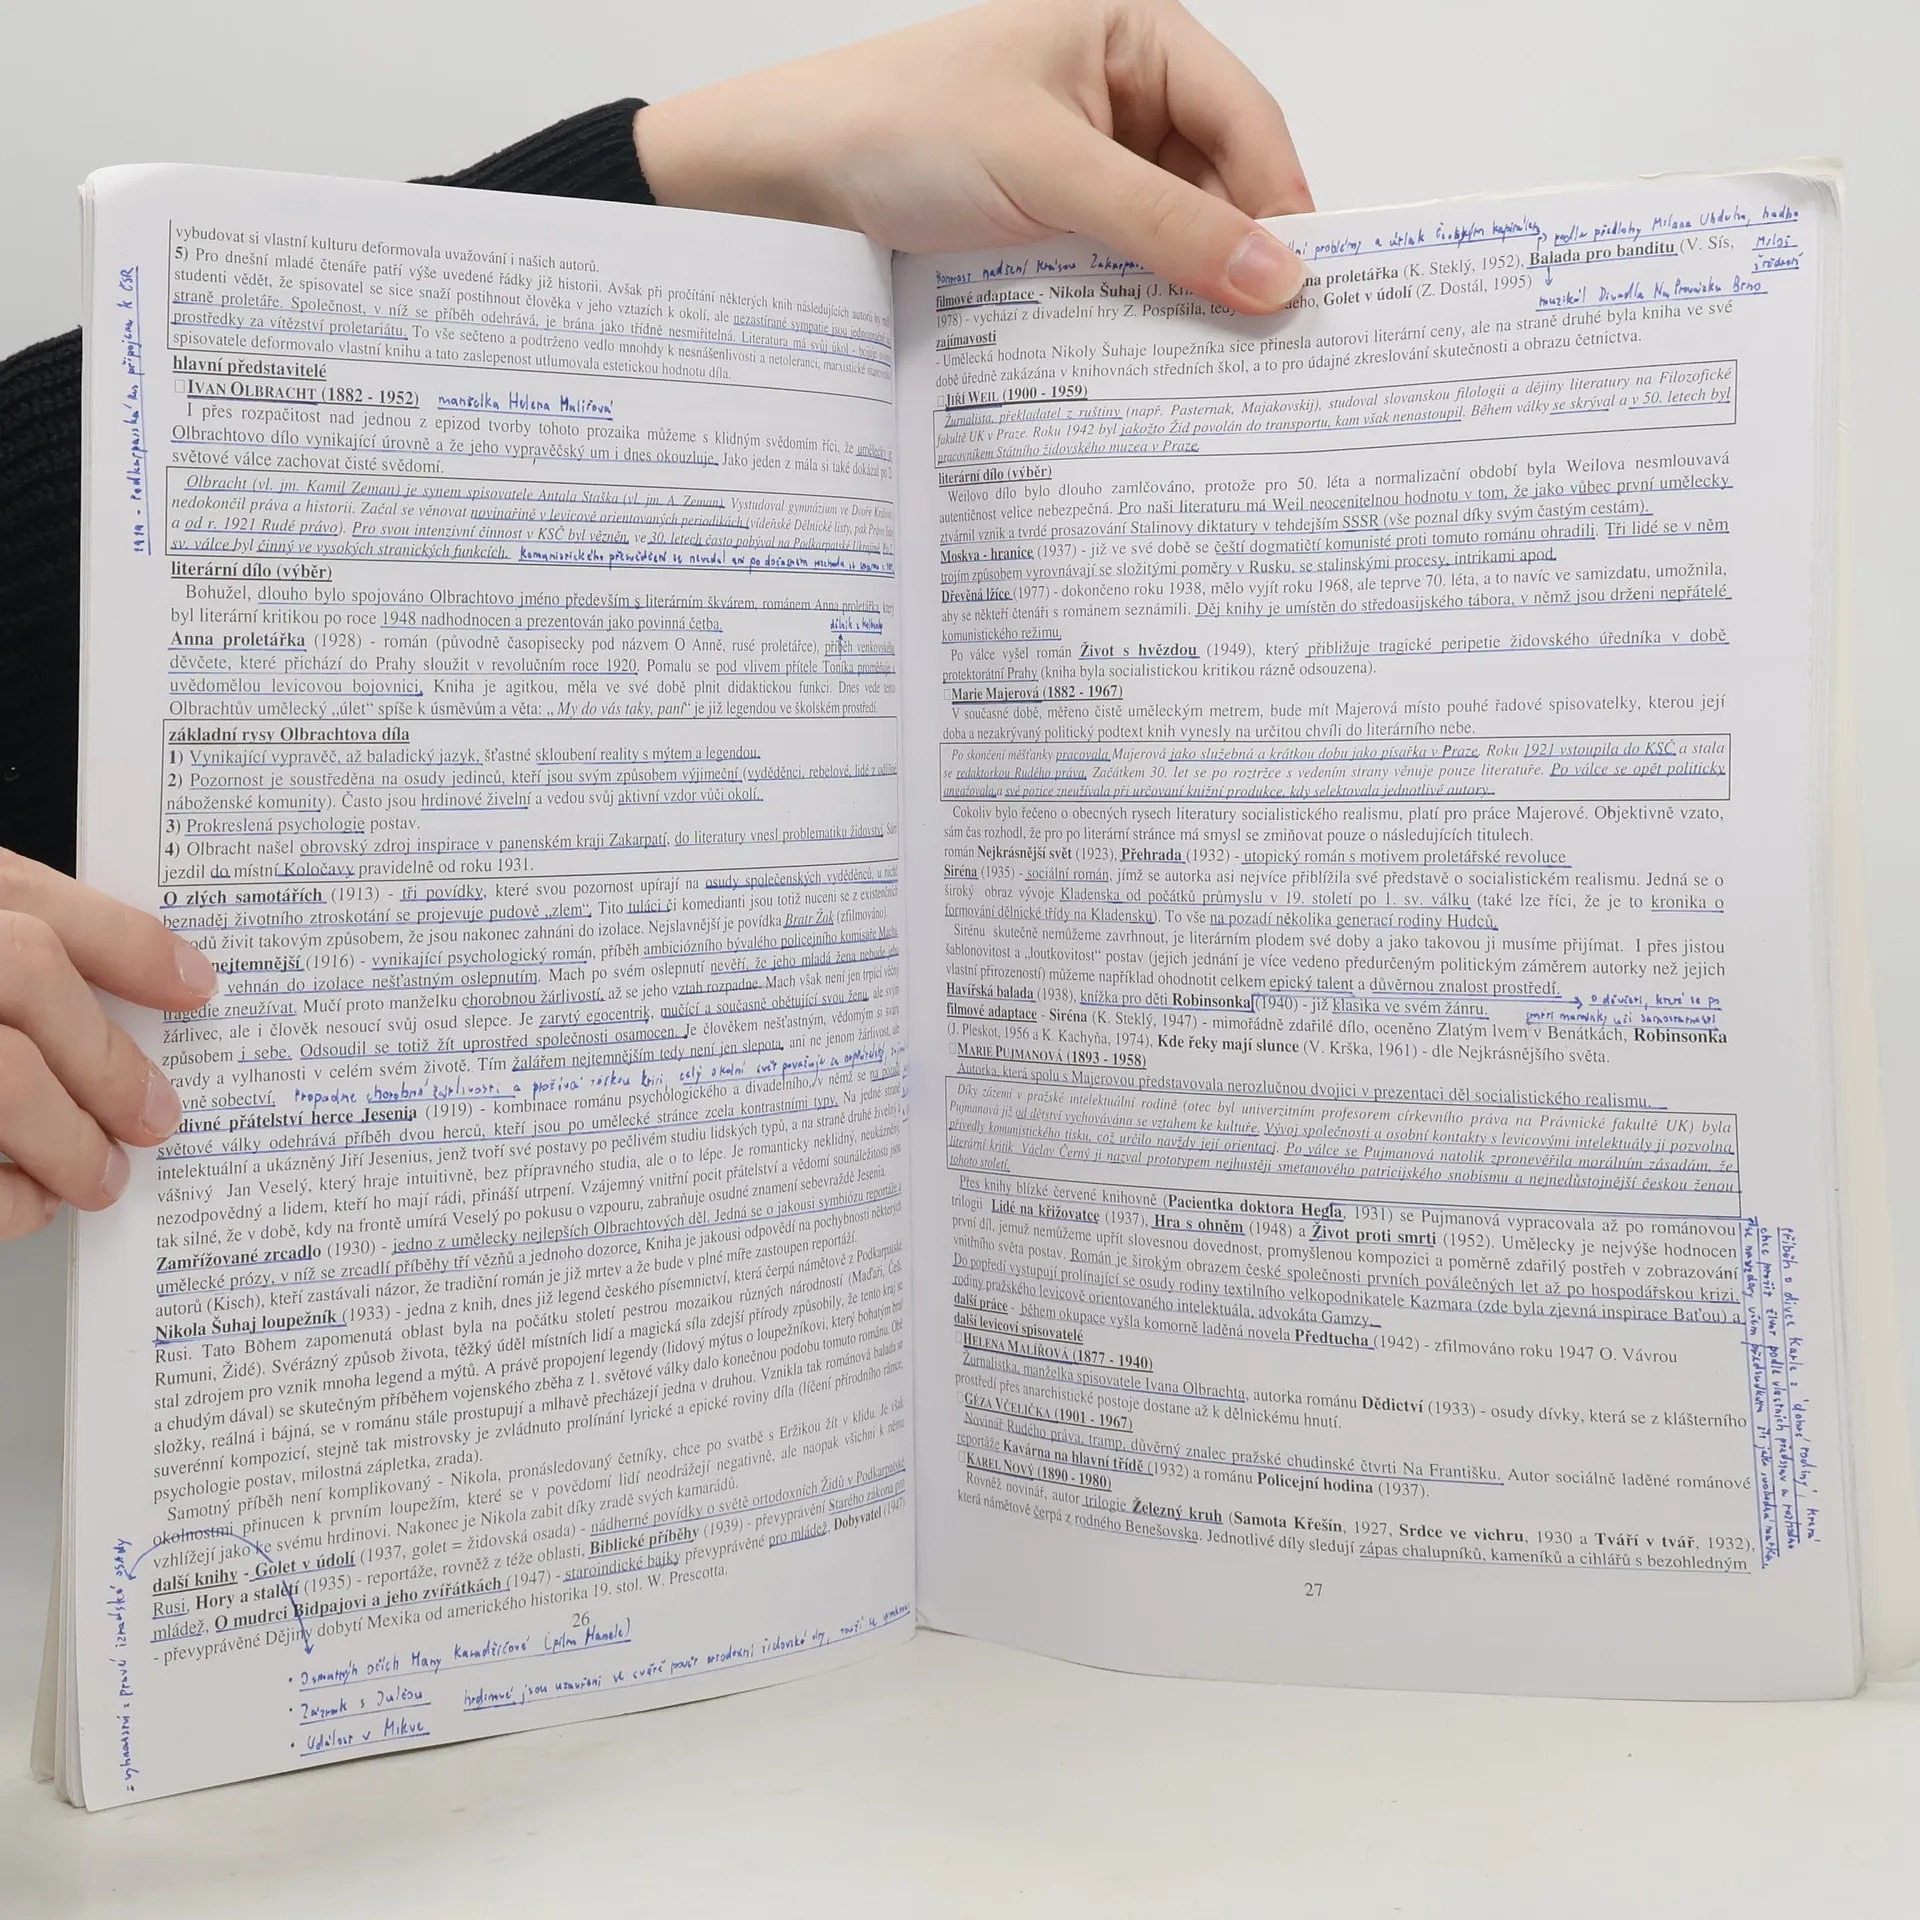 vybudovat si vlastní kulturu deformovala uvažování i našich autorů.
5) Pro dnešní mladé čtenáře patří výše uvedené řádky již historii. Avšak při pročítání některých knih následujících autorů by
studenti vědět, že spisovatel se sice snaží postihnout člověka v jeho vztazích k okolí, ale nezastírané sympatie jsou jednoznačně na
straně proletáře. Společnost, v níž se příběh odehrává, je brána jako třídně nesmiřitelná. Literatura má svůj úkol - bojuje
prostředky za vítězství proletariátu. To vše sečteno a podtrženo vedlo mnohdy k nesnášenlivosti a netoleranci, marxistické
spisovatele deformovalo vlastní knihu a tato zaslepenost utlumovala estetickou hodnotu díla.
hlavní představitelé
IVAN OLBRACHT (1882 - 1952) manželka Helena Malířová
I přes rozpačitost nad jednou z epizod tvorby tohoto prozaika můžeme s klidným svědomím říci, že umělecky je
Olbrachtovo dílo vynikající úrovně a že jeho vypravěčský um i dnes okouzluje. Jako jeden z mála si také dokázal po 2.
světové válce zachovat čisté svědomí.
Olbracht (vl. jm. Kamil Zeman) je synem spisovatele Antala Staška (vl. jm. A. Zeman). Vystudoval gymnázium ve Dvoře Králové,
nedokončil práva a historii. Začal se věnovat novinařině v levicově orientovaných periodikách (vídeňské Dělnické listy, pak Právo lidu
a od r. 1921 Rudé právo). Pro svou intenzivní činnost v KSČ byl vězněn, ve 30. letech často pobýval na Podkarpatské Ukrajině. Po 2.
sv. válce byl činný ve vysokých stranických funkcích. Komunistického přesvědčení se nevzdal ani po dočasném rozchodu
literární dílo (výběr)
Bohužel, dlouho bylo spojováno Olbrachtovo jméno především s literárním škvárem, románem Anna proletářka, který
byl literární kritikou po roce 1948 nadhodnocen a prezentován jako povinná četba.
Anna proletářka (1928) - román (původně časopisecky pod názvem O Anně, rusé proletářce), příběh venkovského
děvčete, které přichází do Prahy sloužit v revolučním roce 1920. Pomalu se pod vlivem přítele Toníka proměňuje v
uvědomělou levicovou bojovnici. Kniha je agitkou, měla ve své době plnit didaktickou funkci. Dnes vede tento
Olbrachtův umělecký „úlet“ spíše k úsměvům a věta: „My do vás taky, paní“ je již legendou ve školském prostředí.
základní rysy Olbrachtova díla
1) Vynikající vypravěč, až baladický jazyk, šťastné skloubení reality s mýtem a legendou.
2) Pozornost je soustředěna na osudy jedinců, kteří jsou svým způsobem výjimeční (vyděděnci, rebelové, lidé z odlišné
náboženské komunity). Často jsou hrdinové živelní a vedou svůj aktivní vzdor vůči okolí.
3) Prokreslená psychologie postav.
4) Olbracht našel obrovský zdroj inspirace v panenském kraji Zakarpatí, do literatury vnesl problematiku židovství. Sám
jezdil do místní Koločavy pravidelně od roku 1931.
O zlých samotářích (1913) - tři povídky, které svou pozornost upírají na osudy společenských vyděděnců, u nichž
beznaděj životního ztroskotání se projevuje pudově „zlem“. Tito tuláci či komedianti jsou totiž nuceni se z existenčních
odů živit takovým způsobem, že jsou nakonec zahnáni do izolace. Nejslavnější je povídka Bratr Žak (zfilmováno).
nejtemnější (1916) - vynikající psychologický román, příběh ambiciózního bývalého policejního komisaře Macha,
vehnán do izolace nešťastným oslepnutím. Mach po svém oslepnutí nevěří, že jeho mladá žena nebude jeho
tragédie zneužívat. Mučí proto manželku chorobnou žárlivostí, až se jeho vztah rozpadne. Mach však není jen trpící věčný
žárlivec, ale i člověk nesoucí svůj osud slepce. Je zarytý egocentrik, mučící a současně obětující svou ženu, ale svým
způsobem i sebe. Odsoudil se totiž žít uprostřed společnosti osamocen. Je člověkem nešťastným, vědomým si
ravdy a vylhanosti v celém svém životě. Tím žalářem nejtemnějším tedy není jen slepota, ani ne jenom žárlivost, ale
vně sobectví. Propadne chorobné žárlivosti a prožívá těžkou krizi, celý okolní svět považuje za nepřátelský
divné přátelství herce Jesenia (1919) - kombinace románu psychologického a divadelního, v němž se na pozadí
světové války odehrává příběh dvou herců, kteří jsou po umělecké stránce zcela kontrastními typy. Na jedné straně
intelektuální a ukázněný Jiří Jesenius, jenž tvoří své postavy po pečlivém studiu lidských typů, a na straně druhé živelný a
vášnivý Jan Veselý, který hraje intuitivně, bez přípravného studia, ale o to lépe. Je romanticky neklidný, neukázněný,
nezodpovědný a lidem, kteří ho mají rádi, přináší utrpení. Vzájemný vnitřní pocit přátelství a vědomí sounáležitosti jsou
tak silné, že v době, kdy na frontě umírá Veselý po pokusu o vzpouru, zabraňuje osudné znamení sebevraždě Jesenia.
Zamřížované zrcadlo (1930) - jedno z umělecky nejlepších Olbrachtových děl. Jedná se o jakousi symbiózu reportáže a
umělecké prózy, v níž se zrcadlí příběhy tří vězňů a jednoho dozorce. Kniha je jakousi odpovědí na pochybnosti některých
autorů (Kisch), kteří zastávali názor, že tradiční román je již mrtev a že bude v plné míře zastoupen reportáží.
Nikola Šuhaj loupežník (1933) - jedna z knih, dnes již legend českého písemnictví, která čerpá námětově z Podkarpatské
Rusi. Tato Bohem zapomenutá oblast byla na počátku století pestrou mozaikou různých národností (Maďaři, Češi,
Rumuni, Židé). Svérázný způsob života, těžký úděl místních lidí a magická síla zdejší přírody způsobily, že tento kraj se
stal zdrojem pro vznik mnoha legend a mýtů. A právě propojení legendy (lidový mýtus o loupežníkovi, který bohatým bral
a chudým dával) se skutečným příběhem vojenského zběha z 1. světové války dalo konečnou podobu tomuto románu. Obě
složky, reálná i bájná, se v románu stále prostupují a mlhavě přecházejí jedna v druhou. Vznikla tak románová balada se
suverénní kompozicí, stejně tak mistrovsky je zvládnuto prolínání lyrické a epické roviny díla (líčení přírodního rámce,
psychologie postav, milostná zápletka, zrada).
Samotný příběh není komplikovaný - Nikola, pronásledovaný četníky, chce po svatbě s Eržikou žít v klidu. Je však
okolnostmi přinucen k prvním loupežím, které se v povědomí lidí neodrážejí negativně, ale naopak všichni k němu
vzhlížejí jako ke svému hrdinovi. Nakonec je Nikola zabit díky zradě svých kamarádů.
další knihy - Golet v údolí (1937, golet = židovská osada) - nádherné povídky o světě ortodoxních Židů v Podkarpatské
Rusi, Hory a staletí (1935) - reportáže, rovněž z téže oblasti, Biblické příběhy (1939) - převyprávění Starého zákona pro
mládež, O mudrci Bidpajovi a jeho zvířátkách (1947) - staroindické bajky převyprávěné pro mládež, Dobyvatel (1947)
- převyprávěné Dějiny dobytí Mexika od amerického historika 19. stol. W. Prescotta.
26
• O smutných očích Hany Karadžičové (film Hanele)
• Zázrak s Julčou
• Událost v Mikve
hrdinové jsou uzavřeni ve světě pověr ortodoxní židovské
1919 - Podkarpatská Rus připojena k ČSR
podle předlohy Milana Uhdeho, hudba
Miloš
Štědroň
filmové adaptace - Nikola Šuhaj (J. K na proletářka (K. Steklý, 1952), Balada pro banditu (V. Sís,
1978) - vychází z divadelní hry Z. Pospíšila, Golet v údolí (Z. Dostál, 1995)
muzikál Divadla Na Provázku Brno
zajímavosti
- Umělecká hodnota Nikoly Šuhaje loupežníka sice přinesla autorovi literární ceny, ale na straně druhé byla kniha ve své
době úředně zakázána v knihovnách středních škol, a to pro údajné zkreslování skutečnosti a obrazu četnictva.
JIŘÍ WEIL (1900 - 1959)
Žurnalista, překladatel z ruštiny (např. Pasternak, Majakovskij), studoval slovanskou filologii a dějiny literatury na Filozofické
fakultě UK v Praze. Roku 1942 byl jakožto Žid povolán do transportu, kam však nenastoupil. Během války se skrýval a v 50. letech byl
pracovníkem Státního židovského muzea v Praze.
literární dílo (výběr)
Weilovo dílo bylo dlouho zamlčováno, protože pro 50. léta a normalizační období byla Weilova nesmlouvavá
autentičnost velice nebezpečná. Pro naši literaturu má Weil neocenitelnou hodnotu v tom, že jako vůbec první umělecky
ztvárnil vznik a tvrdé prosazování Stalinovy diktatury v tehdejším SSSR (vše poznal díky svým častým cestám).
Moskva - hranice (1937) - již ve své době se čeští dogmatičtí komunisté proti tomuto románu ohradili. Tři lidé se v něm
trojím způsobem vyrovnávají se složitými poměry v Rusku, se stalinskými procesy, intrikami apod.
Dřevěná lžíce (1977) - dokončeno roku 1938, mělo vyjít roku 1968, ale teprve 70. léta, a to navíc ve samizdatu, umožnila,
aby se někteří čtenáři s románem seznámili. Děj knihy je umístěn do středoasijského tábora, v němž jsou drženi nepřátelé
komunistického režimu.
Po válce vyšel román Život s hvězdou (1949), který přibližuje tragické peripetie židovského úředníka v době
protektorátní Prahy (kniha byla socialistickou kritikou rázně odsouzena).
Marie Majerová (1882 - 1967)
V současné době, měřeno čistě uměleckým metrem, bude mít Majerová místo pouhé řadové spisovatelky, kterou její
doba a nezakrývaný politický podtext knih vynesly na určitou chvíli do literárního nebe.
Po skončení měšťanky pracovala Majerová jako služebná a krátkou dobu jako písařka v Praze. Roku 1921 vstoupila do KSČ a stala
se redaktorkou Rudého práva. Začátkem 30. let se po roztržce s vedením strany věnuje pouze literatuře. Po válce se opět politicky
angažovala a své pozice zneužívala při určování knižní produkce, kdy selektovala jednotlivé autory.
Cokoliv bylo řečeno o obecných rysech literatury socialistického realismu, platí pro práce Majerové. Objektivně vzato,
sám čas rozhodl, že pro po literární stránce má smysl se zmiňovat pouze o následujících titulech.
román Nejkrásnější svět (1923), Přehrada (1932) - utopický román s motivem proletářské revoluce
Siréna (1935) - sociální román, jímž se autorka asi nejvíce přiblížila své představě o socialistickém realismu. Jedná se o
široký obraz vývoje Kladenska od počátků průmyslu v 19. století po 1. sv. válku (také lze říci, že je to kronika o
formování dělnické třídy na Kladensku). To vše na pozadí několika generací rodiny Hudců.
Sirénu skutečně nemůžeme zavrhnout, je literárním plodem své doby a jako takovou ji musíme přijímat. I přes jistou
šablonovitost a „loutkovitost“ postav (jejich jednání je více vedeno předurčeným politickým záměrem autorky než jejich
vlastní přirozeností) můžeme například ohodnotit celkem epický talent a důvěrnou znalost prostředí.
Havířská balada (1938), knížka pro děti Robinsonka (1940) - již klasika ve svém žánru. → o děvčeti, které se po
smrti maminky učí samostatnosti
filmové adaptace - Siréna (K. Steklý, 1947) - mimořádně zdařilé dílo, oceněno Zlatým lvem v Benátkách, Robinsonka
(J. Pleskot, 1956 a K. Kachyňa, 1974), Kde řeky mají slunce (V. Krška, 1961) - dle Nejkrásnějšího světa.
MARIE PUJMANOVÁ (1893 - 1958)
Autorka, která spolu s Majerovou představovala nerozlučnou dvojici v prezentaci děl socialistického realismu.
Díky zázemí v pražské intelektuální rodině (otec byl univerzitním profesorem církevního práva na Právnické fakultě UK) byla
Pujmanová již od dětství vychovávána se vztahem ke kultuře. Vývoj společnosti a osobní kontakty s levicovými intelektuály ji pozvolna
přivedly komunistického tisku, což určilo navždy její orientaci. Po válce se Pujmanová natolik zpronevěřila morálním zásadám, že
literární kritik Václav Černý ji nazval prototypem nejhustěji smetanového patricijského snobismu a nejnedůstojnější českou ženou
tohoto století.
Přes knihy blízké červené knihovně (Pacientka doktora Hegla, 1931) se Pujmanová vypracovala až po románovou
trilogii Lidé na křižovatce (1937), Hra s ohněm (1948) a Život proti smrti (1952). Umělecky je nejvýše hodnocen
první díl, jemuž nemůžeme upřít slovesnou dovednost, promyšlenou kompozici a poměrně zdařilý postřeh v zobrazování
vnitřního světa postav. Román je širokým obrazem české společnosti prvních poválečných let až po hospodářskou krizi.
Do popředí vystupují prolínající se osudy rodiny textilního velkopodnikatele Kazmara (zde byla zjevná inspirace Baťou) a
rodiny pražského levicově orientovaného intelektuála, advokáta Gamzy.
další práce - během okupace vyšla komorně laděná novela Předtucha (1942) - zfilmováno roku 1947 O. Vávrou
další levicoví spisovatelé
HELENA MALÍŘOVÁ (1877 - 1940)
Žurnalistka, manželka spisovatele Ivana Olbrachta, autorka románu Dědictví (1933) - osudy dívky, která se z klášterního
prostředí přes anarchistické postoje dostane až k dělnickému hnutí.
GÉZA VČELIČKA (1901 - 1967)
Novinář Rudého práva, tramp, důvěrný znalec pražské chudinské čtvrti Na Františku. Autor sociálně laděné románové
reportáže Kavárna na hlavní třídě (1932) a románu Policejní hodina (1937).
KAREL NOVÝ (1890 - 1980)
Rovněž novinář, autor trilogie Železný kruh (Samota Křešín, 1927, Srdce ve vichru, 1930 a Tváří v tvář, 1932),
která námětově čerpá z rodného Benešovska. Jednotlivé díly sledují zápas chalupníků, kameníků a cihlářů s bezohledným
27